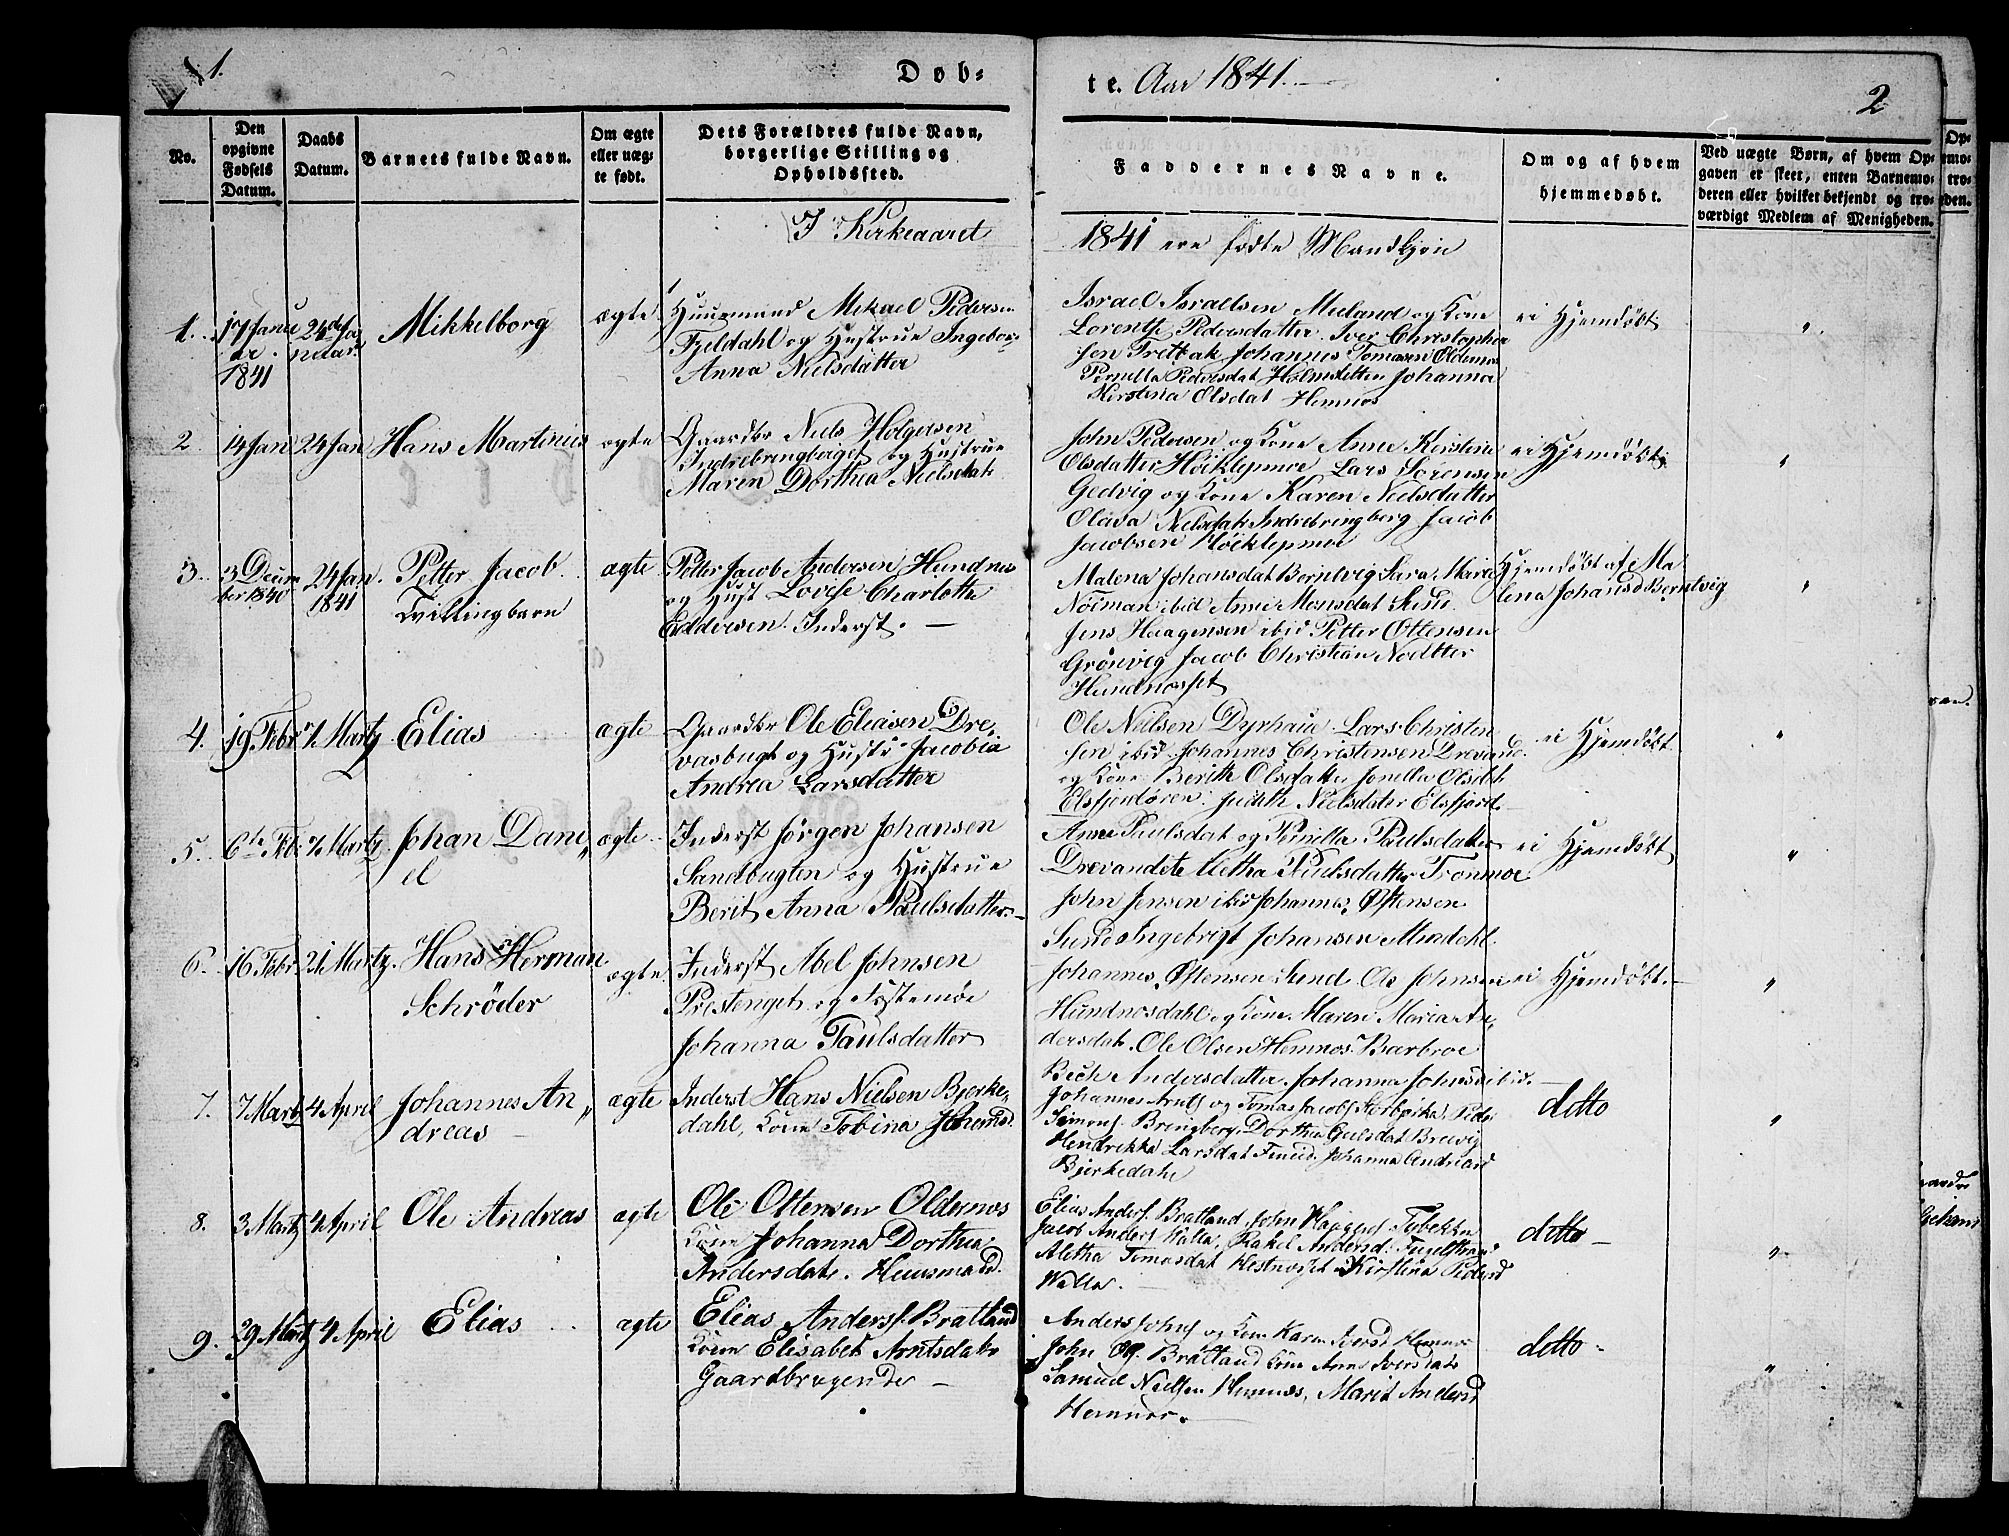 1.
Døb-
te. Aar 1841.
2
No.
Den opgivne Fødsels Datum.
Daabs Datum.
Barnets fulde Navn.
Om ægte eller uæg-te født.
Dets Forældres fulde Navn, borgerlige Stilling og Opholdssted.
Faddernes Navne.
Om og af hvem hjemmedøbt.
Ved uægte Børn, af hvem Op-
gaven er skeet, enten Barnemo-
deren eller hvilket bekjendt og tro-
værdigt Medlem af Menigheden.
I Kirkeaaret
1841 ere fødte Mandkjøn
1. 17 Janu
ar
1841
24de Ja
nuar
Mikkelborg
ægte
Huusmand Mikael Pedersen
Fjeldahl og Hustrue Ingebor
Anna Nielsdatter
Israel Israelsen og Kone
Lorentse Pedersdatter. Iver Christopher
sen Tretbak Johannes Tomasen Oldernes
Pernella Pedersdat Holmsletten Johanna
Kirstina Olsdat Hemnes
ei Hjemdøbt
"
2. 14 Jan 24 Jan Hans Martinus ægte
Gaardbr Niels Holgersen
Indrebringberget og Hustrue
Maren Dorthea Nielsdatr
John Pedersen og Kone Anne Kirstine
Olsdatter Høiklepmoe Lars Sørensen
Gedvig og Kone Karen Nielsdatter
Olava Nielsdatr Indrebringberg Jacob
Jacobsen Høiklepmoe
ei Hjemdøbt
"
3. 3 Decem
ber 1840
24 Jan.
1841
Petter Jacob
Tvillingbarn
ægte
Petter Jacob Andersen Hundnes
og Hust Lovise Charlotte
Eddersen. Inderst. —
Malena Johansdat Berntvig Sara Marie
Nöeman ibid Anne Monsdat Sund
Jens Haagensen ibid Petter Ottensen
Grönvig Jacob Christian
Hundnesset
Hjemdøbt af Ma
lena Johansd Berntvig
"
4. 19 Febr 7 Martz Elias ægte
Gaardbr Ole Eliasen Dre
vasbugt og Hustr Jacobia
Andrea Larsdatter
Ole Nielsen Dyrhaue Lars Christen
sen ibid Johannes Christensen Drevand
og Kone Berith Olsdatter Olsdat
Elsfjordøren. Judith Nielsdater Elsfjord
ei Hjemdøbt
"
5. 6te Feb. 7 Martz Johan Dani
el
ægte
Inderst Jørgen Johansen
Sandbugten og Hustrue
Berit Anna Paulsdatter
Anne Paulsdat og Pernella Paulsdatter
Drevandet Aletha Paulsdatter Tronmoe
John Jensen ibid Johannes Østensen
Sund Ingebrigt Johansen
ei Hjemdøbt
"
6. 16 Febr 21 Martz. Hans Herman
Schrøder
ægte
Inderst Abel Johnsen
Prestenget og Fæstemøe
Johanna Paulsdatter
Johannes Østensen Sund Ole Johnsen
Hundnesdahl og Kone Maren Maria An
dersdat. Ole Olsen Hemnes Barbroe
Bech Andersdatter Johanna Johnsd ibid.
ei Hjemdøbt.
"
7. 7 Martz 4 April Johannes An
dreas
ægte
Inderst Hans Nielsen Bjerke
dahl, Kone Tobina Johansd.
Johannes og Tomas Jacobs Peder
Simons Bringberg, Dorthea Brevig
Hendrikka Larsdat Johanna Andreasd
Bjerkedahl
detto
"
8. 3 Martz 4 April Ole Andreas ægte
Ole Ottensen Oldernes
Kone Johanna Dorthea
Andersdatr. Huusmand.
Elias Anders. Bratland, John
Jacob Anders Walla, Rakel Andersd.
Aletha Tomasdat Hestnesset Kirstina Pedersd
Walla.
detto —
"
9. 29 Martz 4 April Elias ægte
Elias Anders. Bratland
Kone Elisabet Arntsdatr
Gaardbrugende —
Anders Johns og Kone Karen Iversd Hemnes
John Bratland Kone Anne Iversdatr
Samuel Nielsen Hemnes, Marit Andersd
Hemnes.
detto
"